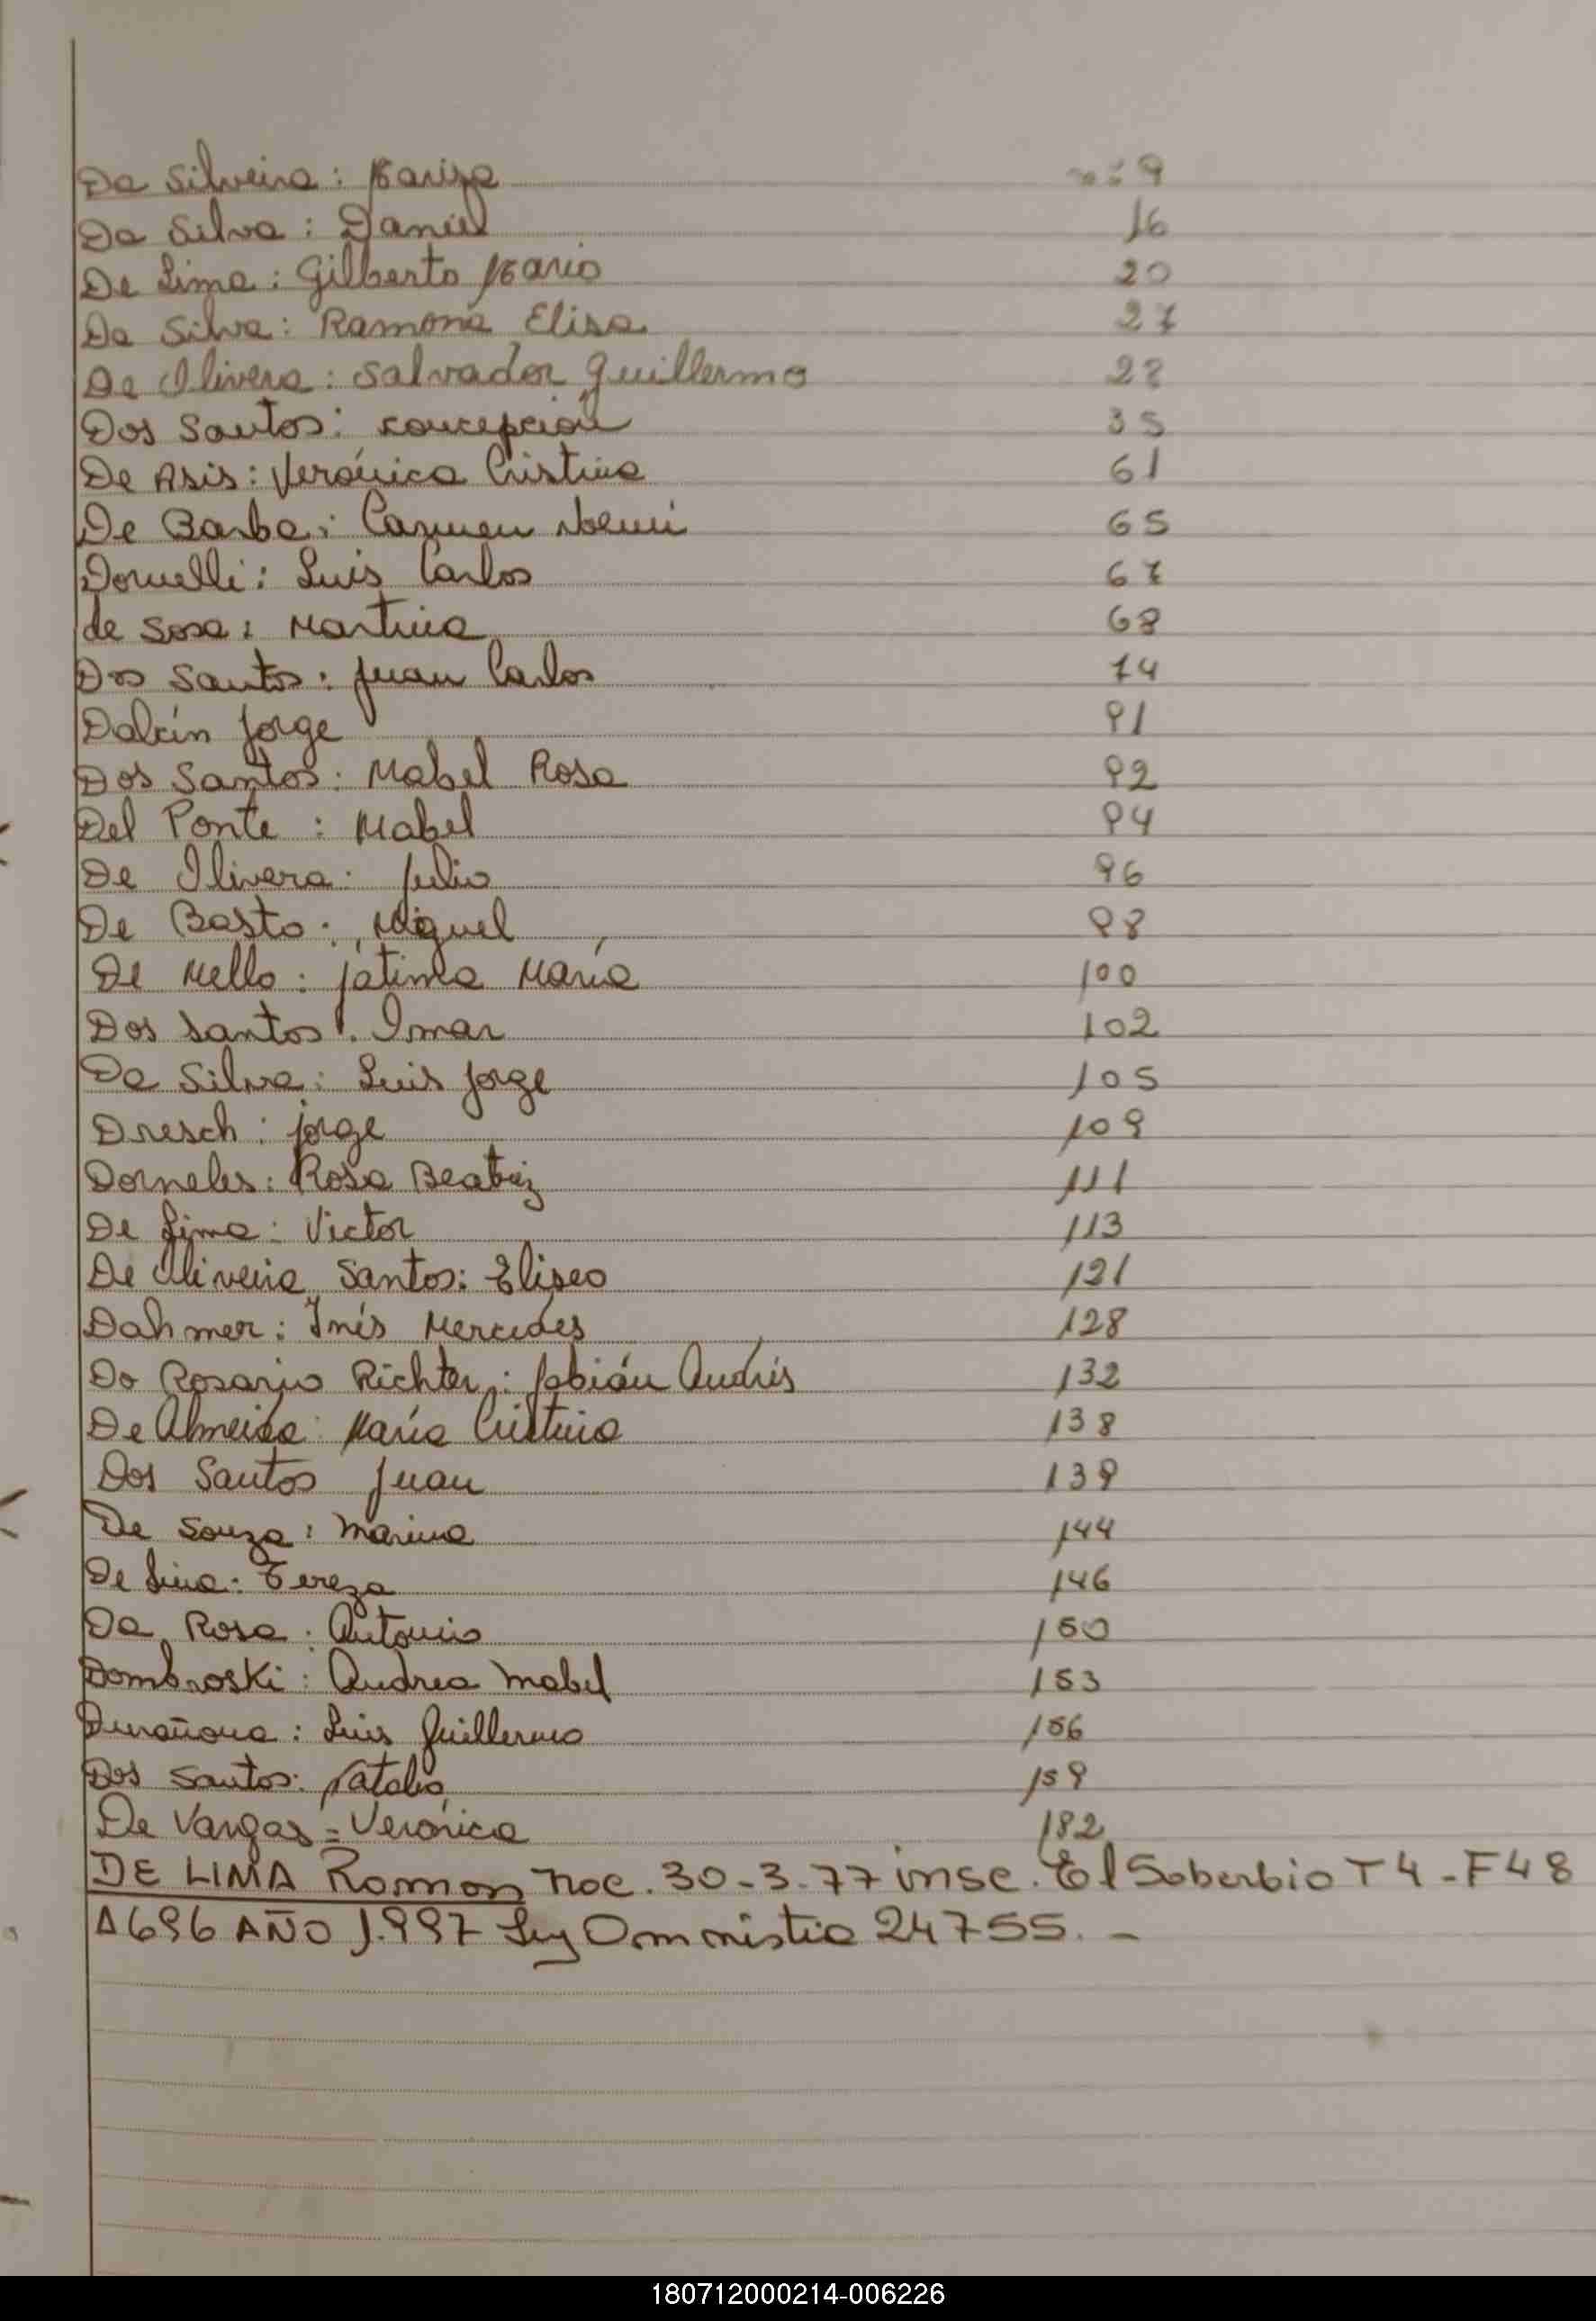 Da Silveira: Mariza nº 9
Da Silva: Daniel 16
De Lima: Gilberto Mario 20
Da Silva: Ramona Elisa 27
De Olivera: Salvador Guillermo 28
Dos Santos: Concepción 35
De Asis: Verónica Cristina 61
De Barba: Carmen Noemi 65
Dornelli: Luis Carlos 67
de Sosa: Martina 68
Dos Santos: Juan Carlos 74
Dalcin Jorge 91
Dos Santos: Mabel Rosa 92
Del Ponte: Mabel 94
De Olivera: Julio 96
De Basto: Miguel 98
De Mello: Fátima María 100
Dos Santos: Imar 102
Da Silva: Luis Jorge 105
Dresch: Jorge 109
Dorneles: Rosa Beatriz 111
De Lima: Victor 113
De Oliveira Santos: Eliseo 121
Dahmer: Inés Mercedes 128
Do Rosario Richter: Fabián Andrés 132
De Almeida: María Cristina 138
Dos Santos Juan 139
De Souza: Marina 144
De Lima: Tereza 146
Da Rosa: Antonio 150
Dombroski: Andrea Mabel 153
Durañona: Luis Guillermo 156
Dos Santos: Natalia 159
De Vargas = Verónica 182
DE LIMA Ramon noc. 30-3-77 insc. El Soberbio T4-F48
A696 AÑO 1.997 Ley Omnistia 24755.-
180712000214-006226